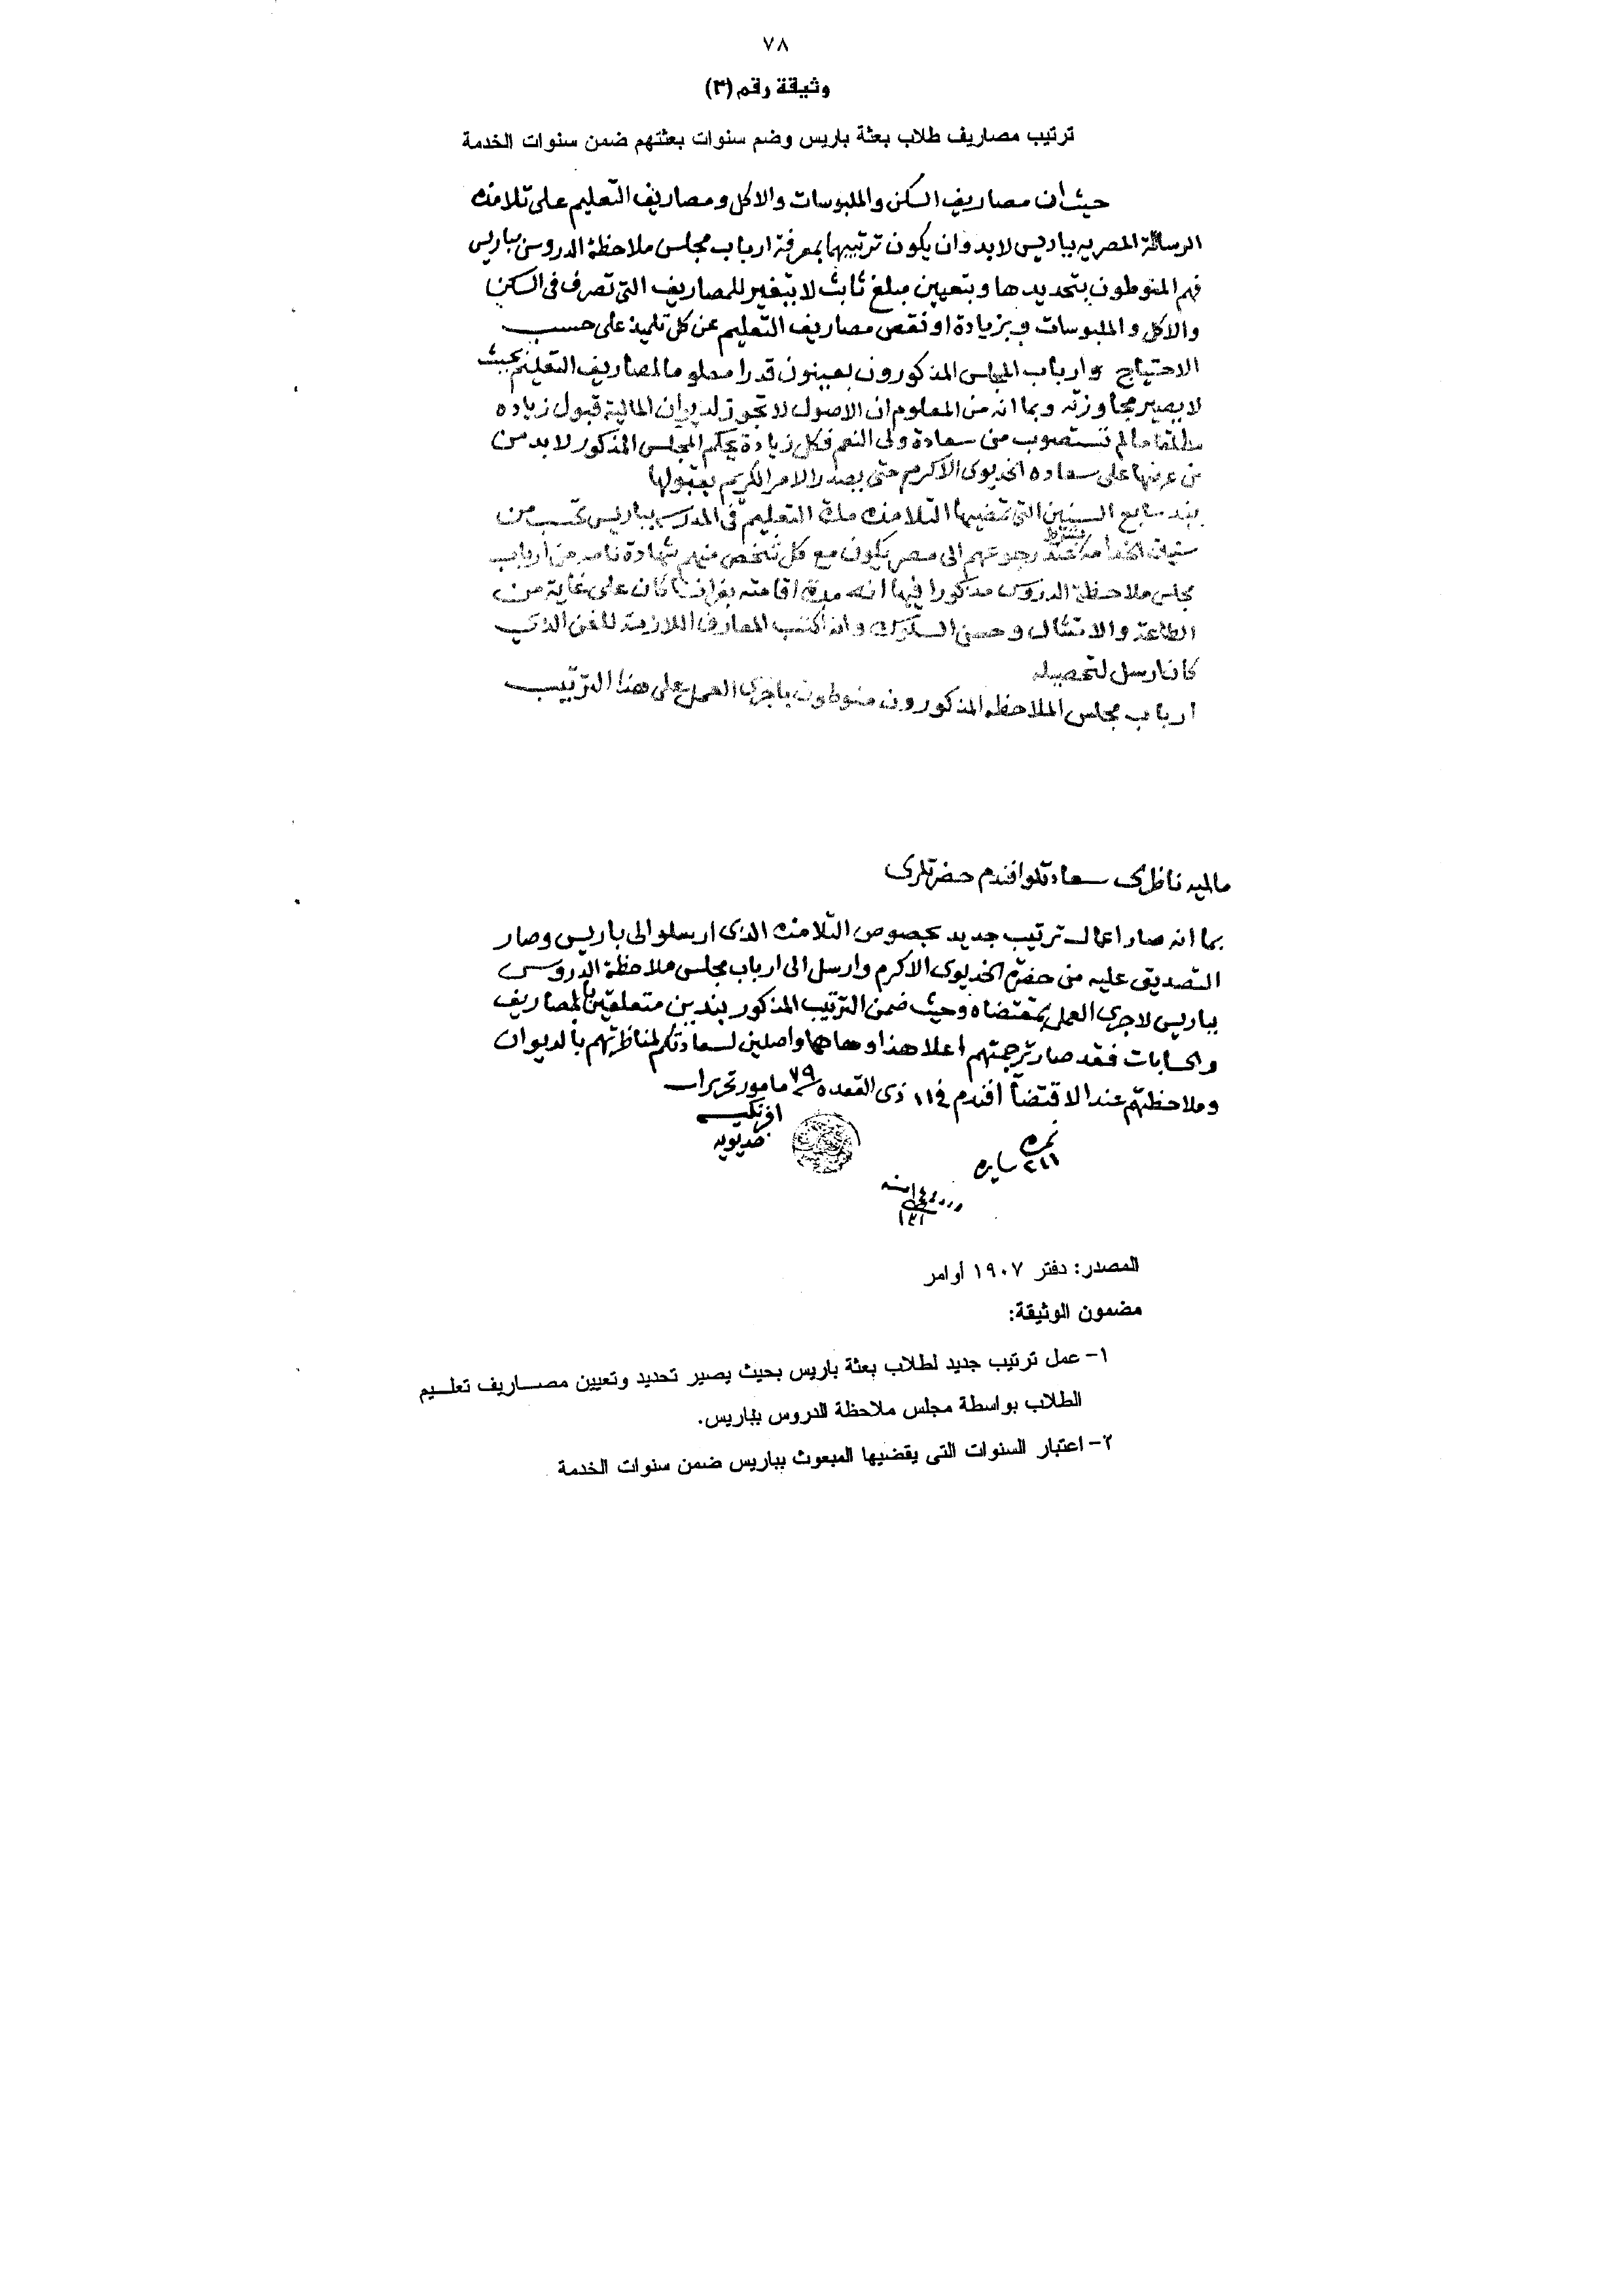 ٧٨
وثيقة رقم (٣)
ترتيب مصاريف طلاب بعثة باريس وضم سنوات بعثتهم ضمن سنوات الخدمة
حيث ان مصاريف السكن والملبوسات والاكل ومصاريف التعليم على تلامذه
الرسالة المصريه بباريس لابد وان يكون ترتيبها بمعرفة ارباب مجلس ملاحظة الدروس بباريس
فهم المنوطون بتحديدها وبتعيين مبلغ ثابت لا يتغير للمصاريف التى تصرف فى السكن
والاكل والملبوسات وبزيادة او نقص مصاريف التعليم عن كل تلميذ على حسب
الاحتياج وارباب المجلس المذكورون يعينون قدرا معلوما لمصاريف التعليم بحيث
لا يصير مجاوزته وبما انه من المعلوم ان الاصول لا تجوز لديوان المالية قبول زياده
مطلقا مالم تستصوب من سعادة ولى النعم فكل زيادة بحكم المجلس المذكور لابد من
من عرضها على سعاده الخديوى الاكرم حتى يصدر الامر الكريم بقبولها
بند سابع السنين التى تمضيها التلامذه مدة التعليم فى المدرسه بباريس تحسب من
سنين الخدامه بشرط عند رجوعهم الى مصر يكون مع كل شخص منهم شهادة تامه من ارباب
مجلس ملاحظة الدروس مذكورا فيها انه مدة اقامته بفرانسا كان على غاية من
الطاعة والامتثال وحسن السلوك وانه اكتسب المعارف اللازمة للفن الذى
كان ارسل لتحصيله
ارباب مجلس الملاحظه المذكورون منوطون باجرى العمل على هذا الترتيب
ماليه ناظرى سعادتلو افندم حضرتلرى
بما انه صار اعمال ترتيب جديد بخصوص التلامذه الذى ارسلوا الى باريس وصار
التصديق عليه من حضرة الخديوى الاكرم وارسل الى ارباب مجلس ملاحظة الدروس
بباريس لاجرى العمل بمقتضاه وحيث ضمن الترتيب المذكور بندين متعلقين بالمصاريف
والحسابات فقد صار ترجمتهم اعلا هذا وهاهما واصلين لسعادتكم لمناظرتهم بالديوان
وملاحظتهم عند الاقتضأ افندم فى ١١ ذى القعده ٧٩ مامور تحريرات
افرنكيه
خديويه
نمره
٢١١ سايره
المصدر: دفتر ١٩٠٧ أوامر
مضمون الوثيقة:
١- عمل ترتيب جديد لطلاب بعثة باريس بحيث يصير تحديد وتعيين مصــاريف تعلــيم
الطلاب بواسطة مجلس ملاحظة الدروس بباريس.
٢- اعتبار السنوات التى يقضيها المبعوث بباريس ضمن سنوات الخدمة